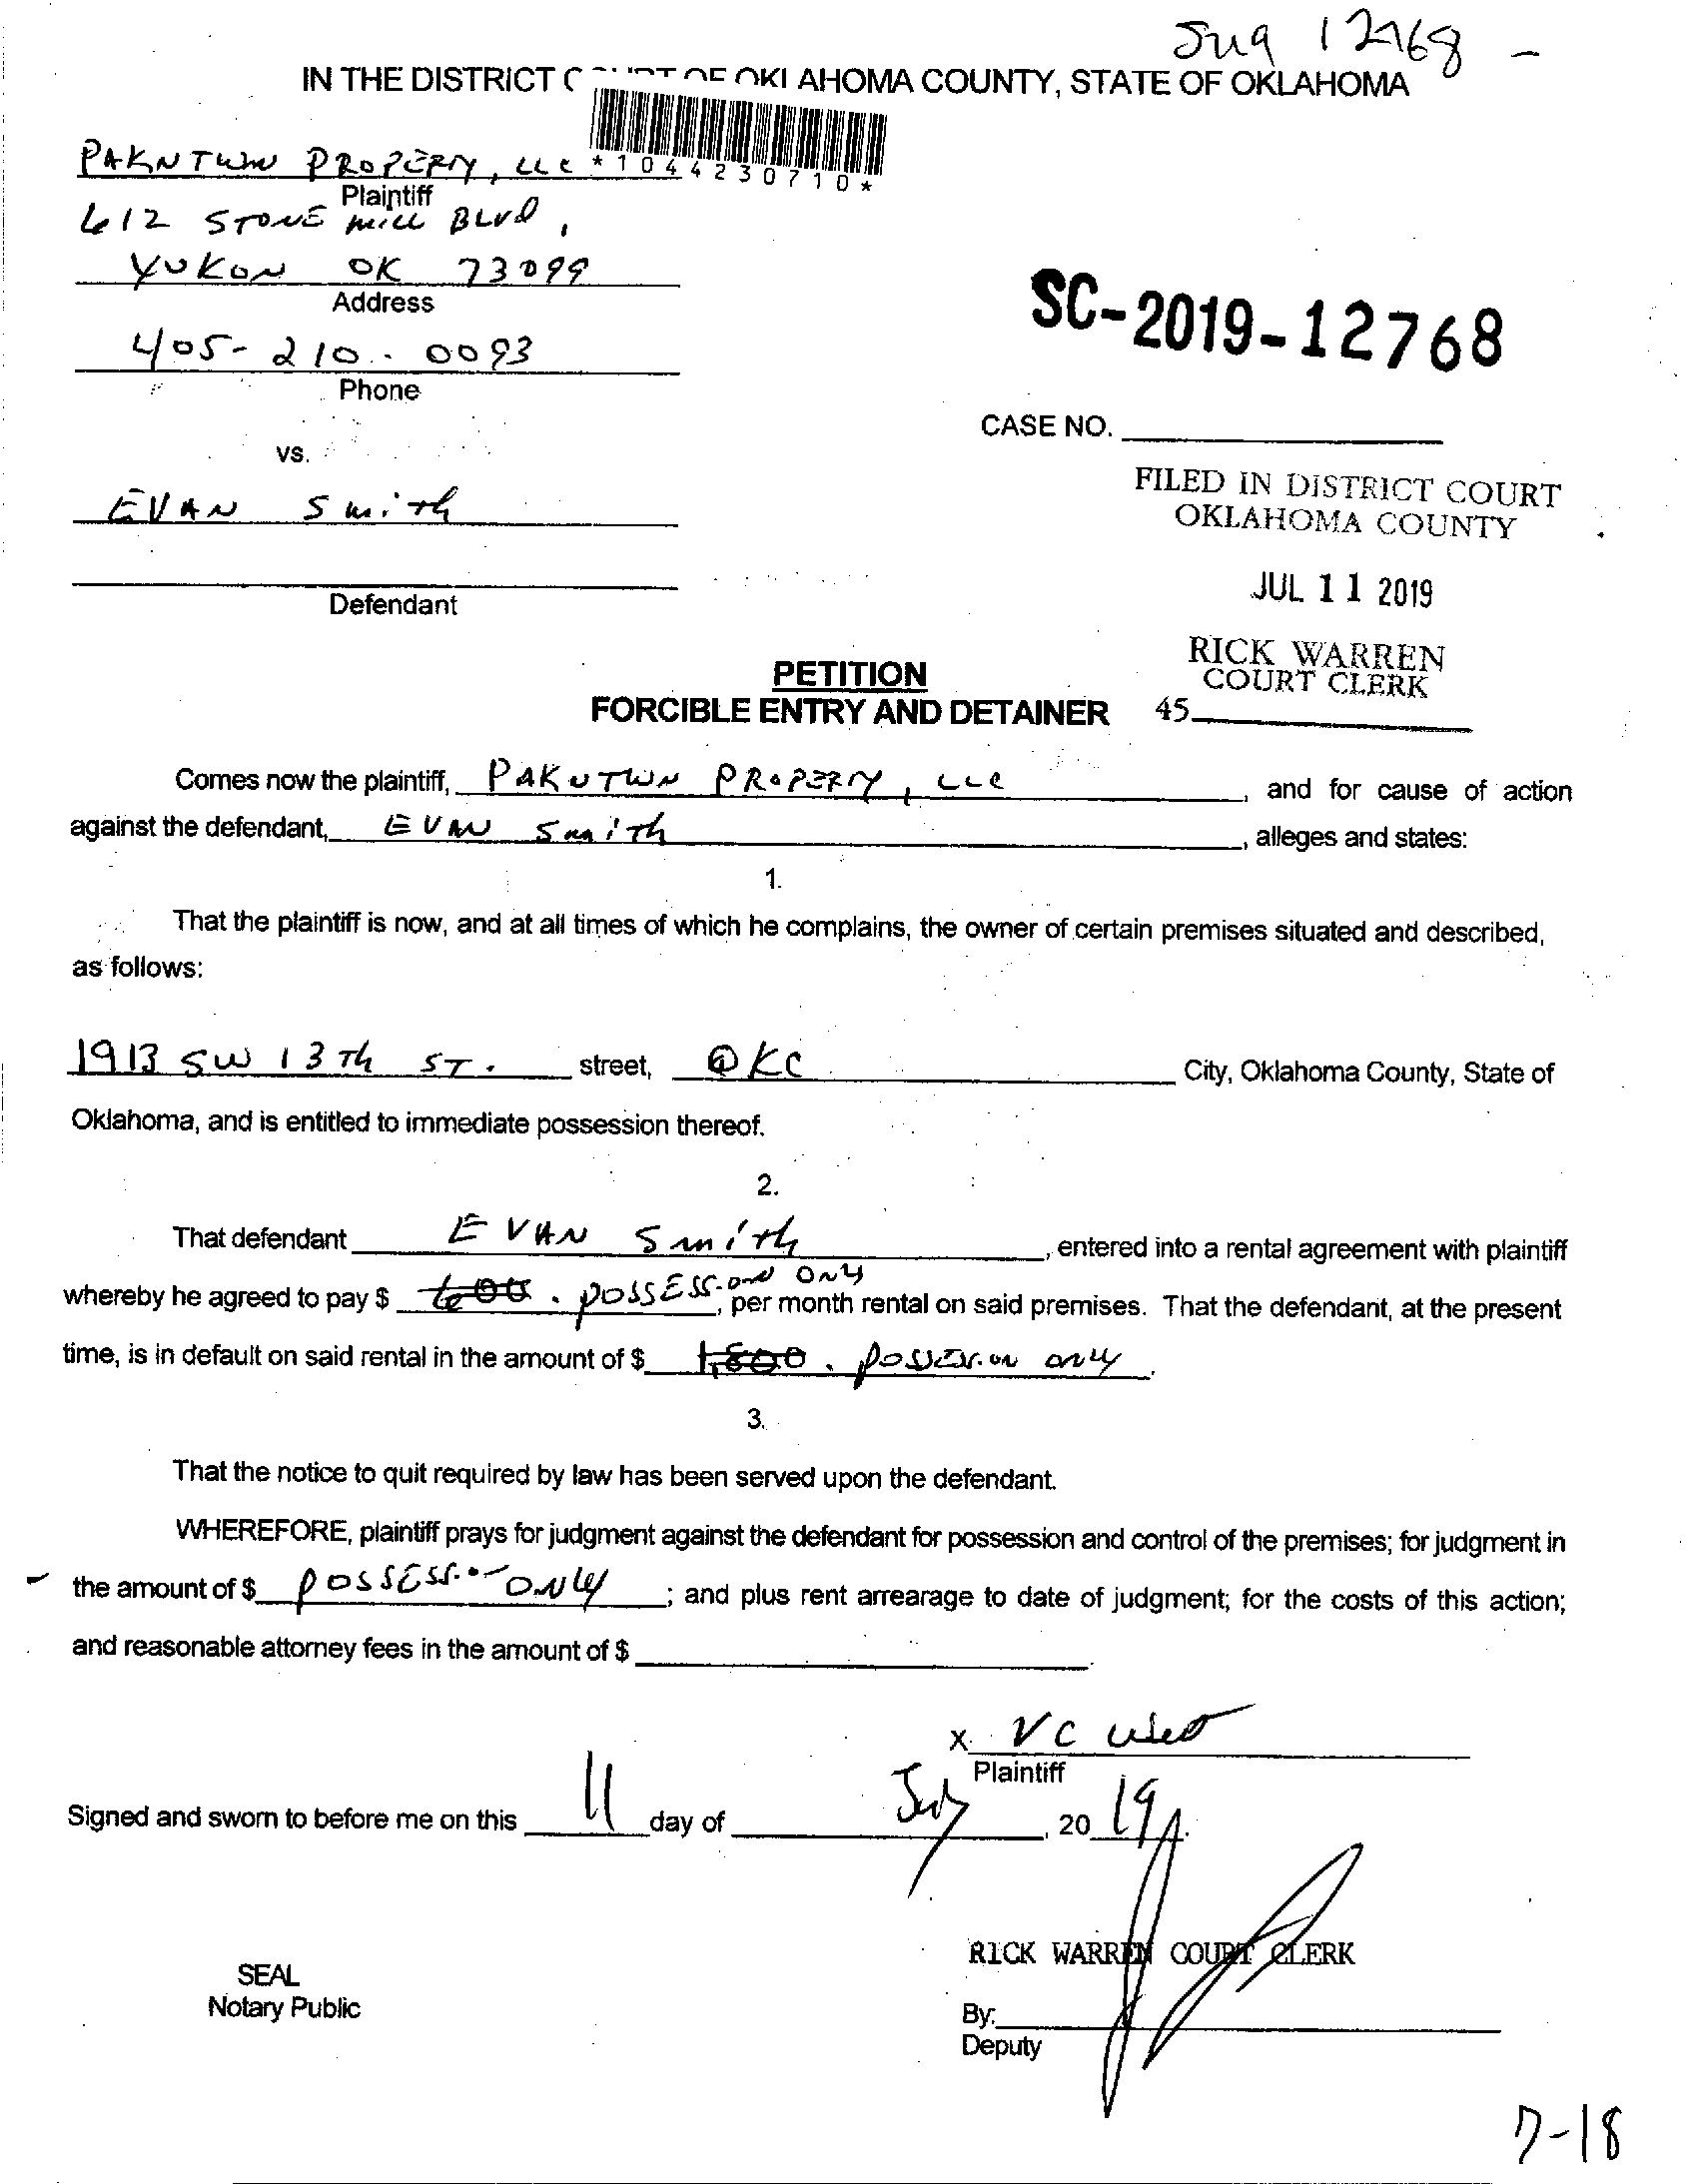 IN THE DISTRICT COURT OF OKLAHOMA COUNTY, STATE OF OKLAHOMA
*1044230710*
PROPERTY, LLC
Plaintiff
612 STONE MILL BLVD,
YUKON OK 73099
Address
405-210-0093
Phone
SC-2019-12768
CASE NO.
vs.
EVAN Smith
Defendant
FILED IN DISTRICT COURT
OKLAHOMA COUNTY
JUL 11 2019
RICK WARREN
COURT CLERK
45
PETITION
FORCIBLE ENTRY AND DETAINER
Comes now the plaintiff, PROPERTY, LLC, and for cause of action
against the defendant, EVAN Smith, alleges and states:
1.
That the plaintiff is now, and at all times of which he complains, the owner of certain premises situated and described,
as follows:
1913 SW 13th ST. street, OKC City, Oklahoma County, State of
Oklahoma, and is entitled to immediate possession thereof.
2.
That defendant EVAN Smith, entered into a rental agreement with plaintiff
whereby he agreed to pay $ 600. POSSESSION ONLY, per month rental on said premises. That the defendant, at the present
time, is in default on said rental in the amount of $ 1,800. Possession only.
3.
That the notice to quit required by law has been served upon the defendant.
WHEREFORE, plaintiff prays for judgment against the defendant for possession and control of the premises; for judgment in
the amount of $ POSSESSION ONLY; and plus rent arrearage to date of judgment; for the costs of this action;
and reasonable attorney fees in the amount of $
X VC
Plaintiff
Signed and sworn to before me on this 11 day of July, 20 19.
RICK WARREN COURT CLERK
SEAL
Notary Public
By:
Deputy
7-18